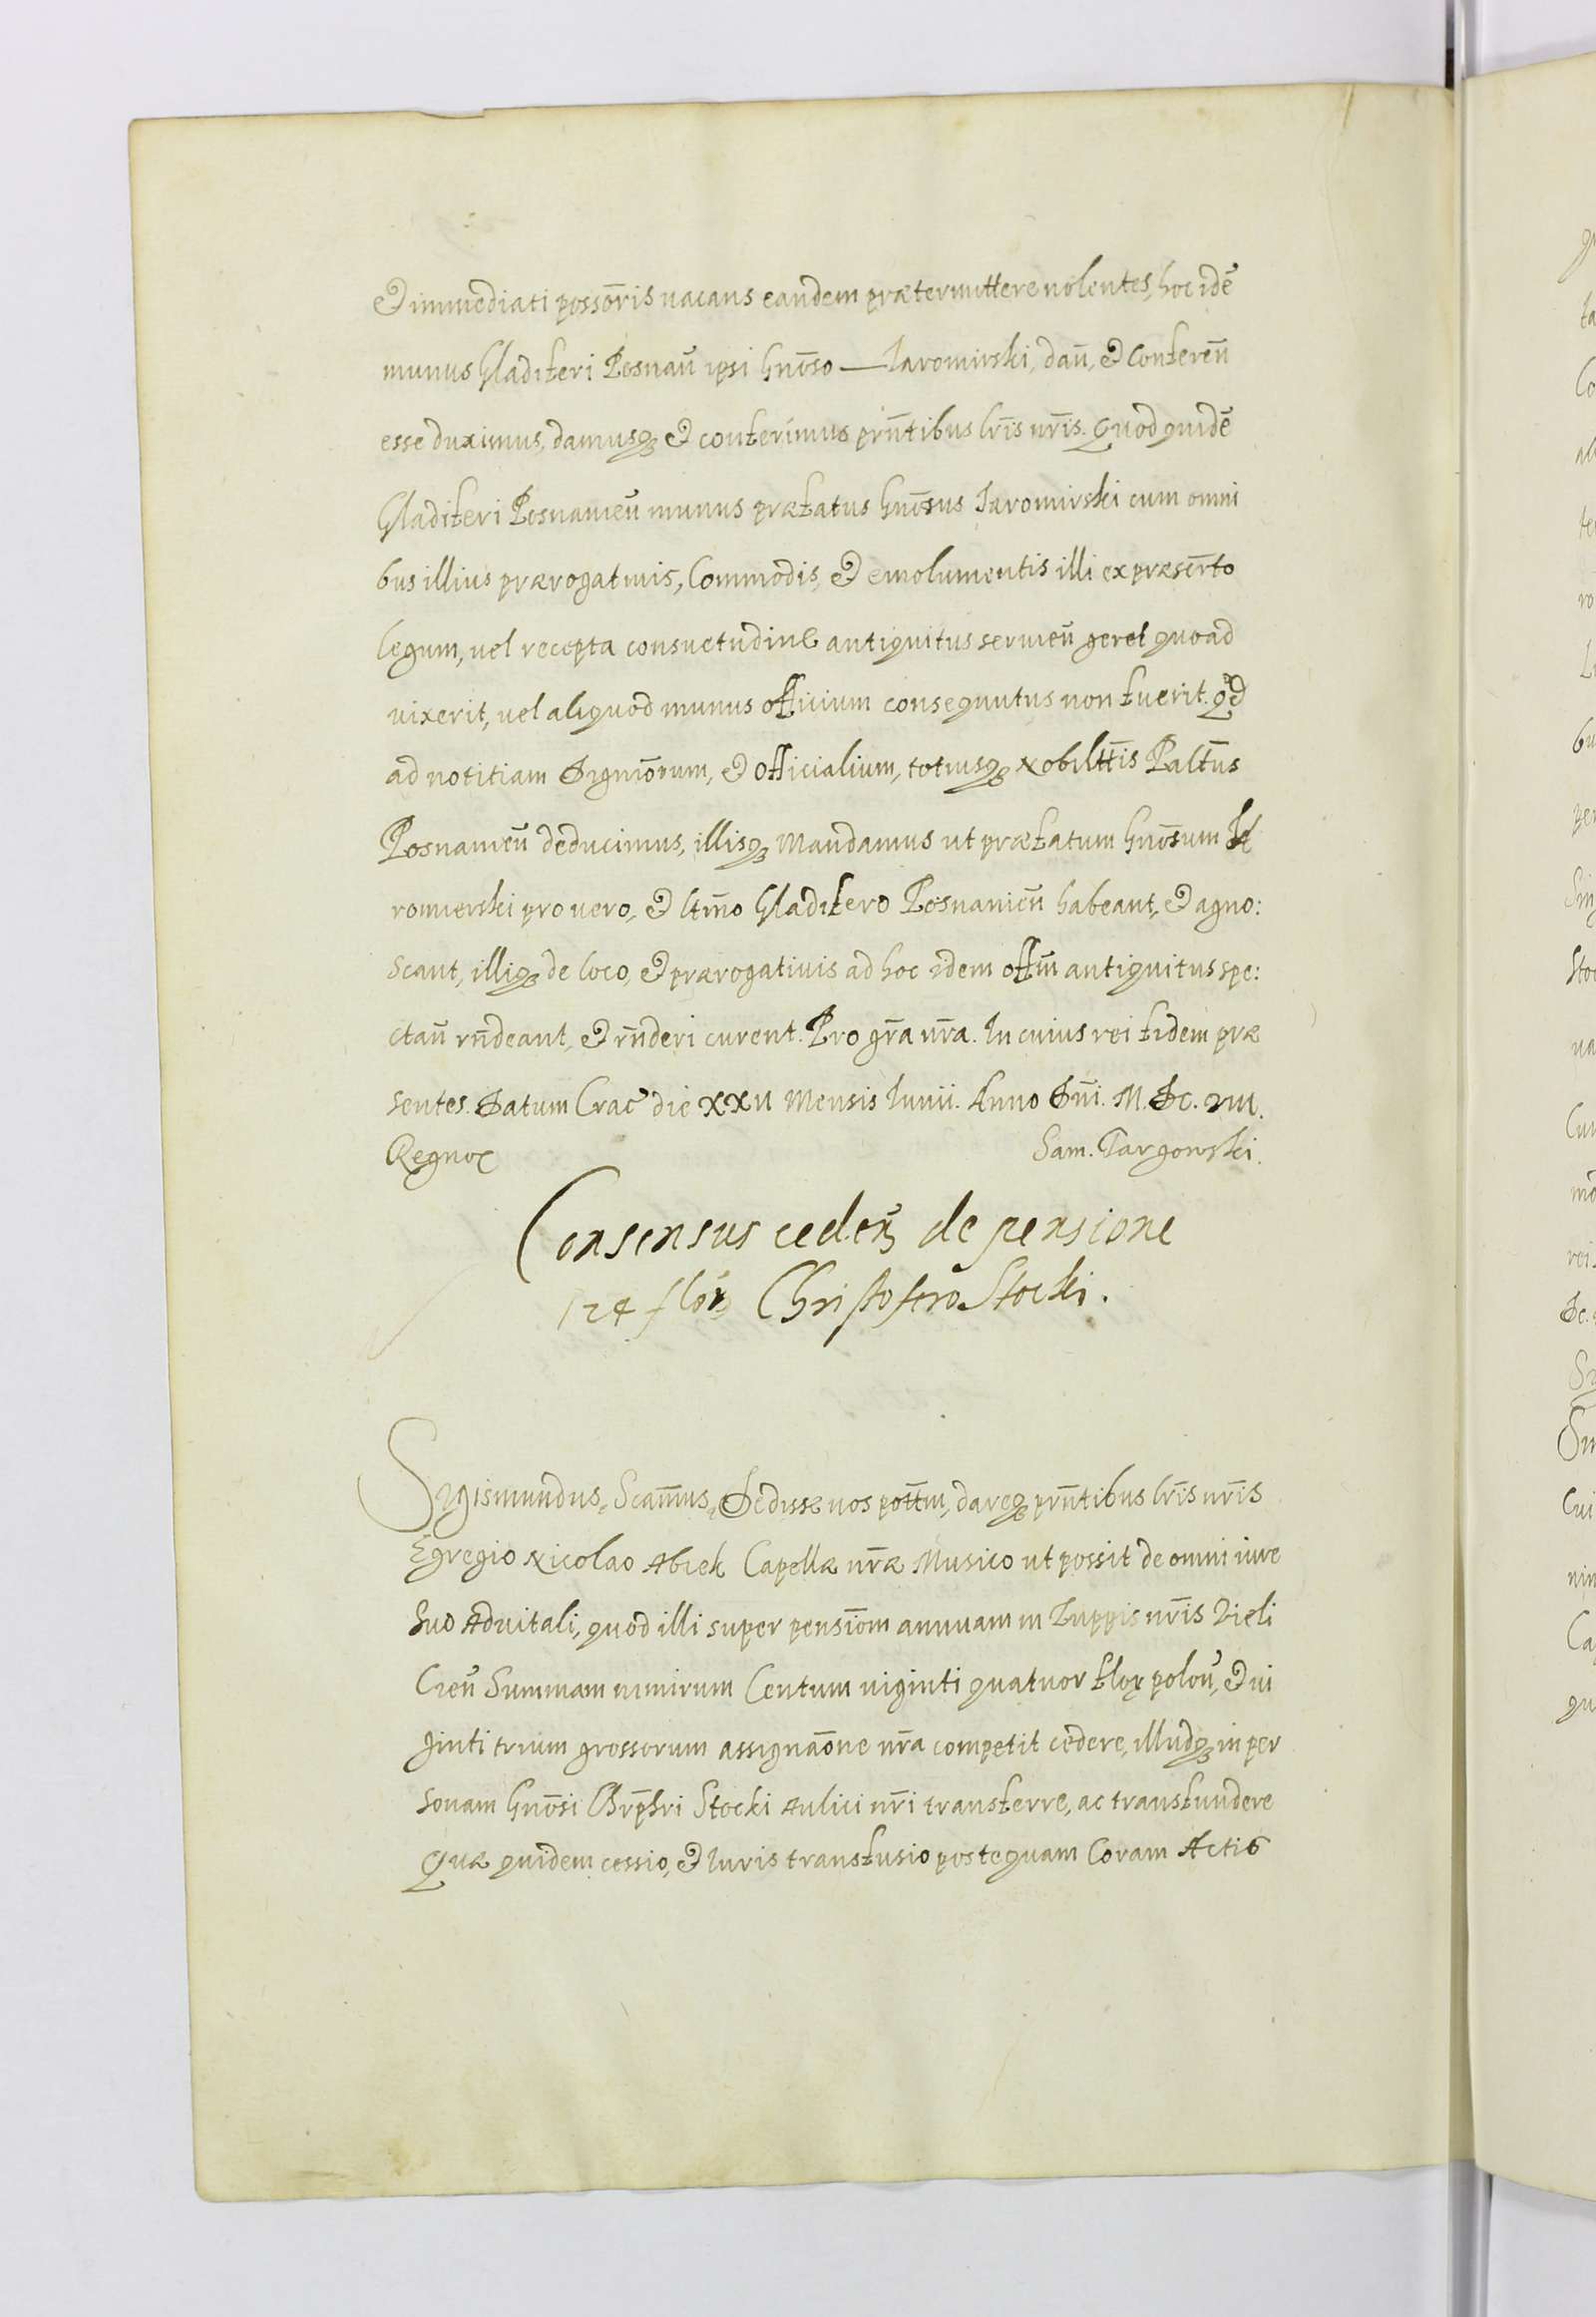 & immediati possōris vacans eandem prætermittere nolentes, hoc idē
munus Gladiferi Posnan̄ ipsi Gnōso — Jaromirski, dan̄, & Conferen̄
esse duximus, damusq₃ & conferimus prn̄tibus lr̄is nr̄is. Quod quidē
Gladiferi Posnanien̄ munus præfatus Gnōsus Jaromirski cum omni
bus illius prærogativis, Commodis, & emolumentis illi ex præscr̄to
legum, vel recepta consuetudine antiquitus servien̄ geret quoad
vixerit, vel aliquod munus officium consequutus non fuerit. Qd
ad notitiam Digniōrum, & Officialium, totiusq₃ Nobilitt̄is Palt̄us
Posnanien̄ deducimus, illisq₃ Mandamus ut præfatum Gnōsum Ja
romierski pro vero, & ltm̄o Gladifero Posnanien̄ habeant, & agno:
scant, illiq₃ de loco, & prærogativis ad hoc idem offm̄ antiquitus spe:
ctan̄ rn̄deant, & rn̄deri curent. Pro gr̄a nr̄a. In cuius rei fidem præ
sentes. Datum Crac̄ die XXII Mensis Iunii. Anno Dn̄i. M. Dc. IIII.
Regnoꝝ Sam. Targowski.
Consensus ceden̄ de pensione
124 flor̄ Christofero Stocki.
Sigismundus, Scam̄us, Dedisse nos pott̄m, dareq₃ prn̄tibus lr̄is nr̄is
Egregio Nicolao Abiek Capellæ nr̄æ Musico ut possit de omni iure
suo Advitali, quod illi super pensiōm annuam in Zuppis nr̄is Vieli
Cien̄ Summam nimirum Centum viginti quatuor floꝝ polon̄, & vi
ginti trium grossorum assignāone nr̄a competit cedere, illudq₃ in per
sonam Gnōsi Chrp̄hri Stocki Aulici nr̄i transferre, ac transfundere
Quæ quidem cessio, & Iuris transfusio postequam Coram Actis